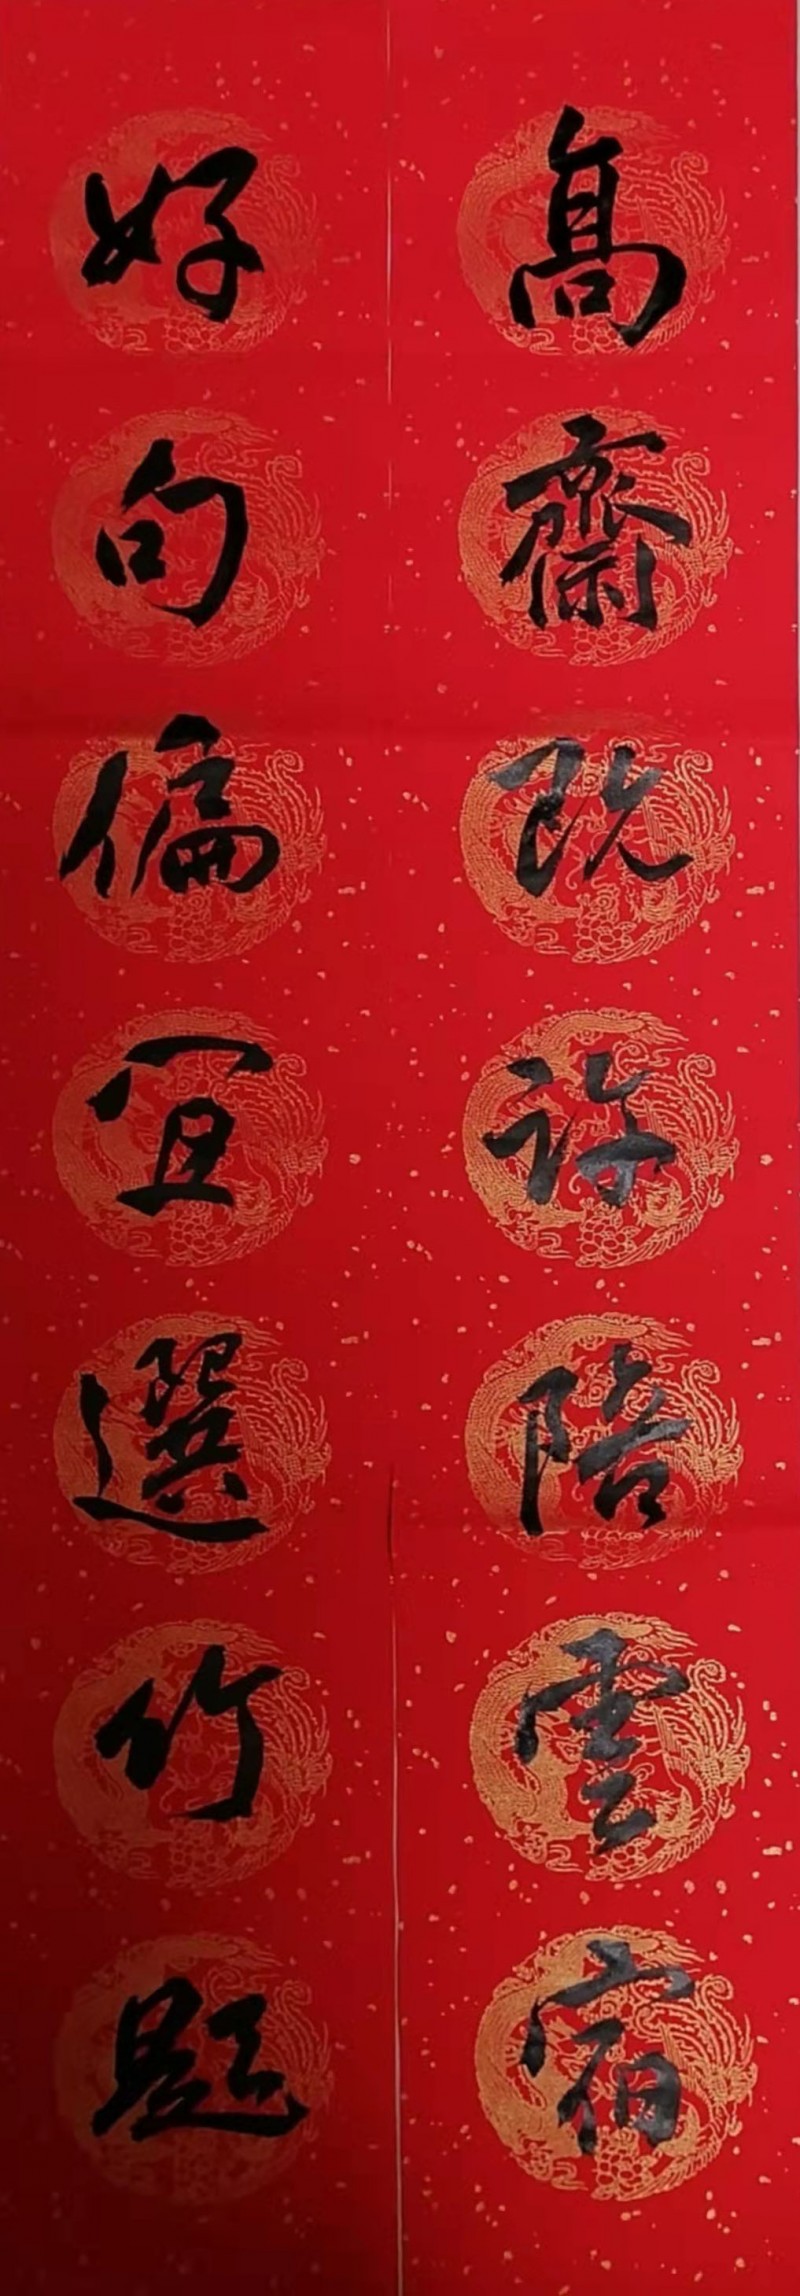 高齋既許陪雲宿
好句偏宜選竹題